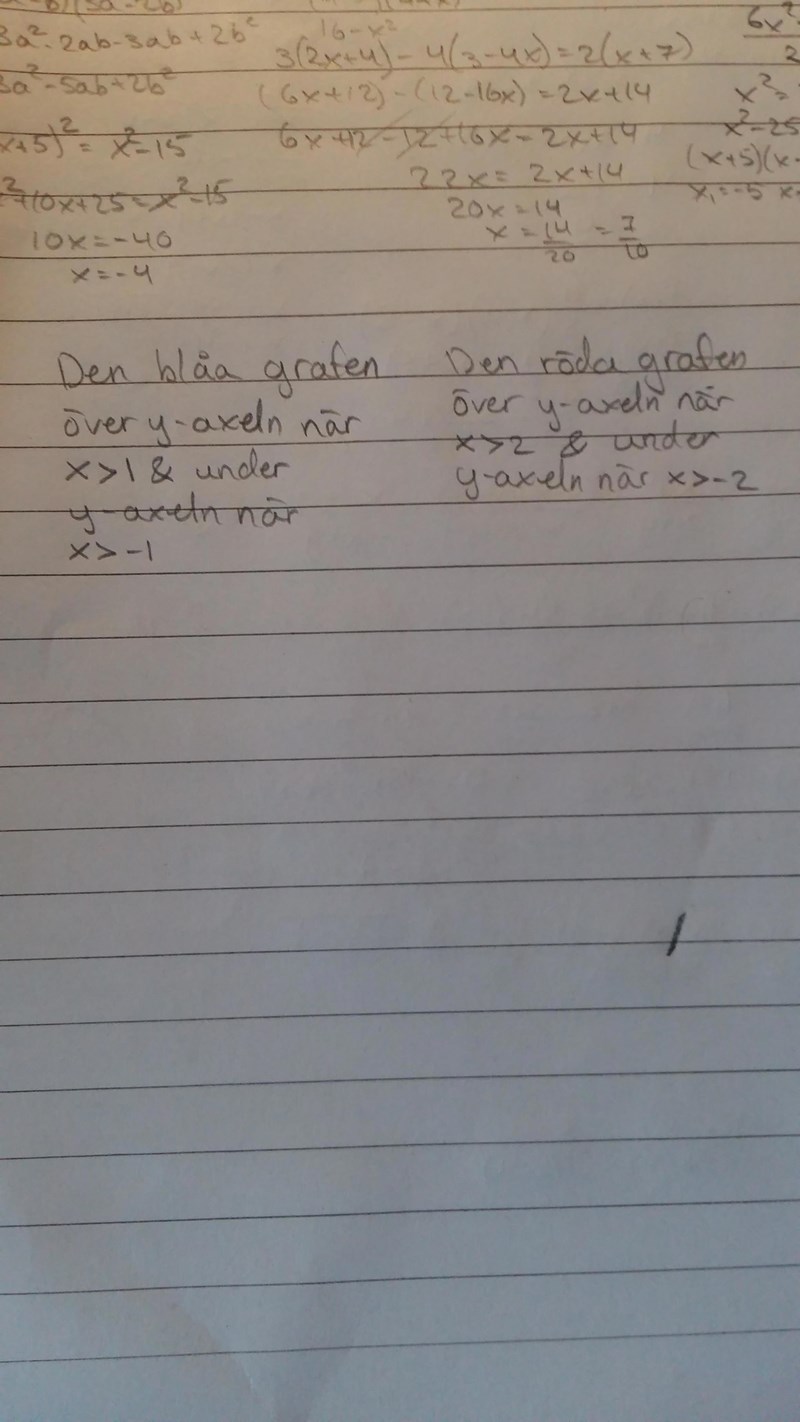 3a²-2ab-3ab+2b²
3a²-5ab+2b²
x+5)² = x²-15
²+10x+25=x²-15
10x=-40
x=-4
16-x²
3(2x+4)-4(3-4x)=2(x+7)
(6x+12)-(12-16x)=2x+14
6x+12-12+16x=2x+14
22x=2x+14
20x=14
x=14/20=7/10
6x²
2
x²=
x²-25
(x+5)(x-
x₁=-5 x
Den blåa grafen
över y-axeln när
x>1 & under
y-axeln när
x>-1
Den röda grafen
över y-axeln när
x>2 & under
y-axeln när x>-2